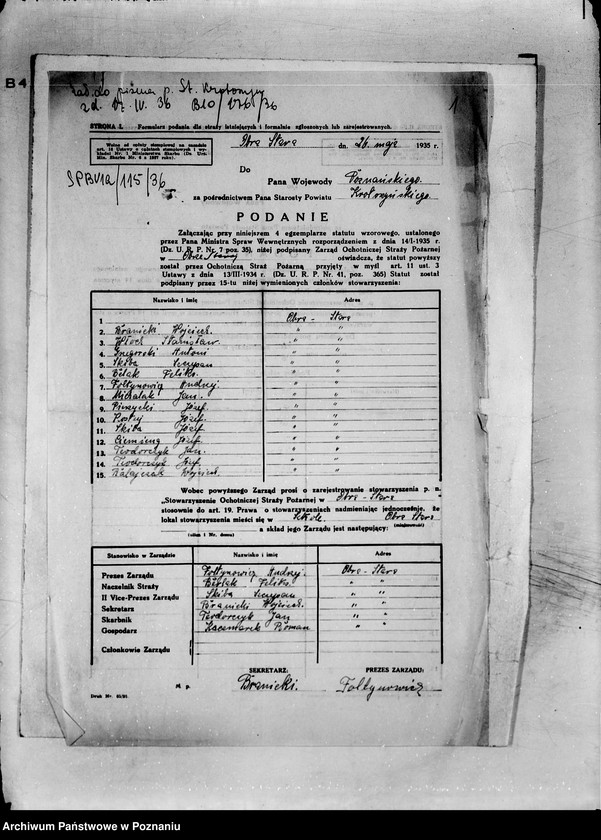 B 4
Zał. do pisma p. St. Krotoszyn
z d. IV. 36 B10/176/36
1
STRONA I. Formularz podania dla straży istniejących i formalnie zgłoszonych lub zarejestrowanych.
Wolne od opłaty stemplowej na zasadzie
art. 16 Ustawy o opłatach stemplowych i wy-
kładni Nr. 1 Ministerstwa Skarbu (Dz. Urz.
Min. Skarbu Nr. 6 z 1927 roku).
Obra Stara dn. 26 maja 1935 r.
SPBV1a/115/36
Do
Pana Wojewody Poznańskiego
za pośrednictwem Pana Starosty Powiatu Krotoszyńskiego.
PODANIE
Załączając przy niniejszem 4 egzemplarze statutu wzorowego, ustalonego
przez Pana Ministra Spraw Wewnętrznych rozporządzeniem z dnia 14/I-1935 r.
(Dz. U. R. P. Nr. 7 poz. 35), niżej podpisany Zarząd Ochotniczej Straży Pożarnej
w Obrze Starej oświadcza, że statut powyższy
został przez Ochotniczą Straż Pożarną przyjęty w myśl art. 11 ust. 3
Ustawy z dnia 13/III-1934 r. (Dz. U. R. P. Nr. 41, poz. 365) Statut został
podpisany przez 15-tu niżej wymienionych członków stowarzyszenia:
Nazwisko i imię Adres
1 Obra - Stara
2. Branicki Wojciech. " "
3. Włoch Stanisław " "
4. Gregorski Antoni " "
5. Skiba Szczepan " "
6. Bielak Feliks. " "
7. Fołtynowicz Andrzej " "
8. Michalak Jan. " "
9. Józef. " "
10. Józef. " "
11. Skiba Józef " "
12. Józef " "
13. Teodorczyk Jan. " "
14. Teodorczyk Józef " "
15. Ratajczak Wojciech. " "
Wobec powyższego Zarząd prosi o zarejestrowanie stowarzyszenia p. n.
„Stowarzyszenie Ochotniczej Straży Pożarnej w Obra - Stara
stosownie do art. 19. Prawa o stowarzyszeniach nadmieniając jednocześnie, że
lokal stowarzyszenia mieści się w Szkole. Obra Stara
(miejscowość)
a skład jego Zarządu jest następujący:
(ulica i Nr. domu)
Stanowisko w Zarządzie Nazwisko i imię Adres
Prezes Zarządu Fołtynowicz Andrzej. Obra - Stara
Naczelnik Straży Bielak Feliks. " "
II Vice-Prezes Zarządu Skiba Szczepan " "
Sekretarz Branicki Wojciech. " "
Skarbnik Teodorczyk Jan " "
Gospodarz Kaczmarek Roman " "
Członkowie Zarządu
SEKRETARZ: PREZES ZARZĄDU:
M. p. Branicki. Fołtynowicz
Druk Nr. 85/35.
Archiwum Państwowe w Poznaniu